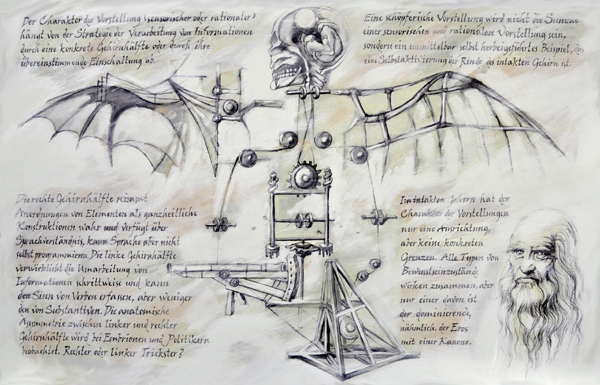 Der Charakter der Vorstellung (sensorischer oder rationaler)
hängt von der Strategie der Verarbeitung von Informationen
durch eine konkrete Gehirnhälfte oder durch ihre
übereinstimmende Einschaltung ab.
Eine schöpferische Vorstellung wird nicht die Summe
einer sensorischen und rationalen Vorstellung sein,
sondern ein unmittelbar selbst herbeigeführtes Beispiel, das
eine Selbstaktivierung der Rinde des intakten Gehirn ist.
Die rechte Gehirnhälfte nimmt
Anordnungen von Elementen als ganzheitliche
Konstruktionen wahr und verfügt über
Sprachverständnis, kann Sprache aber nicht
selbst programmieren. Die linke Gehirnhälfte
verwirklicht die Umarbeitung von
Informationen schrittweise und kann
den Sinn von Verben erfassen, aber weniger
den von Substantiven. Die anatomische
Asymmetrie zwischen linker und rechter
Gehirnhälfte wird bei Embrionen und Politikern
beobachtet. Rechter oder linker Trickster?
Im intakten Gehirn hat der
Charakter der Vorstellungen
nur eine Ausrichtung,
aber keine konkreten
Grenzen. Alle Typen von
Bewußtseinszustände
wirken zusammen, aber
nur einer davon ist
der dominierende,
nähmlich, der Eros
mit einer Kanone.